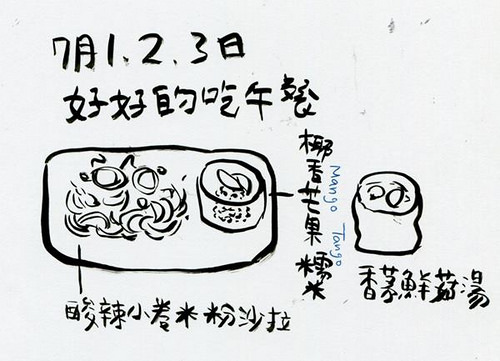 7月1.2.3日
好好的吃午餐
椰香芒果糯米
Mango Tango
香茅鮮菇湯
酸辣小卷米粉沙拉